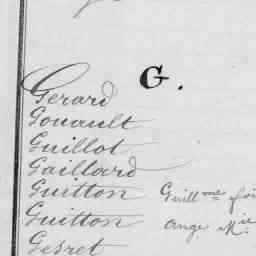 G.
Gerard
Gouault
Guillot
Gaillard
Guitton Guill.me
Guitton Ange M.ie
Gesret